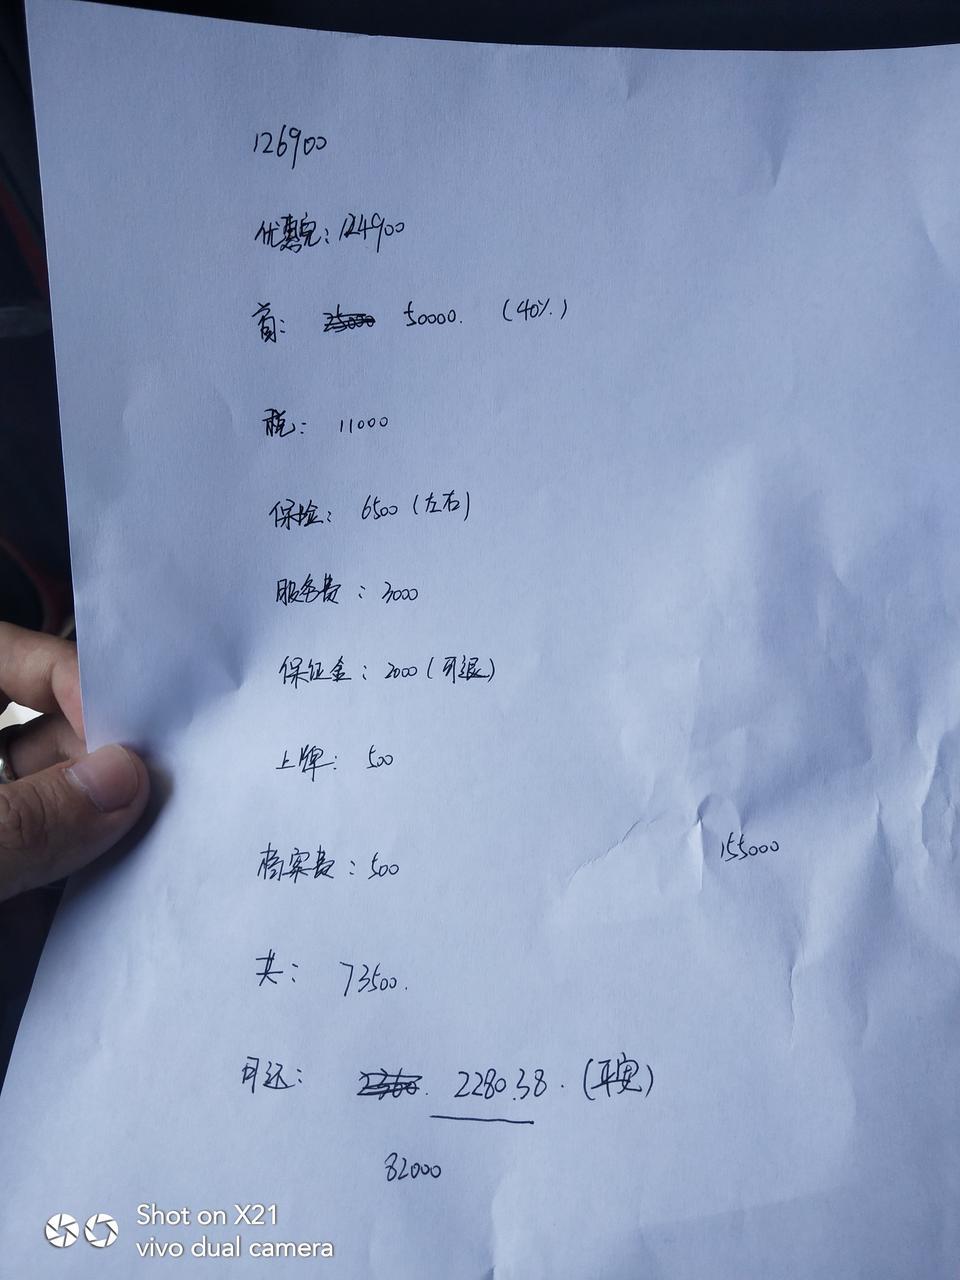 126900
优惠完：124900
首： 25000 50000. (40%)
税： 11000
保险： 6500 (左右)
服务费： 3000
保证金： 2000 (可退)
上牌： 500
档案费： 500
155000
共： 73500.
月还： 2360. 2280.38. (平安)
82000
Shot on X21
vivo dual camera